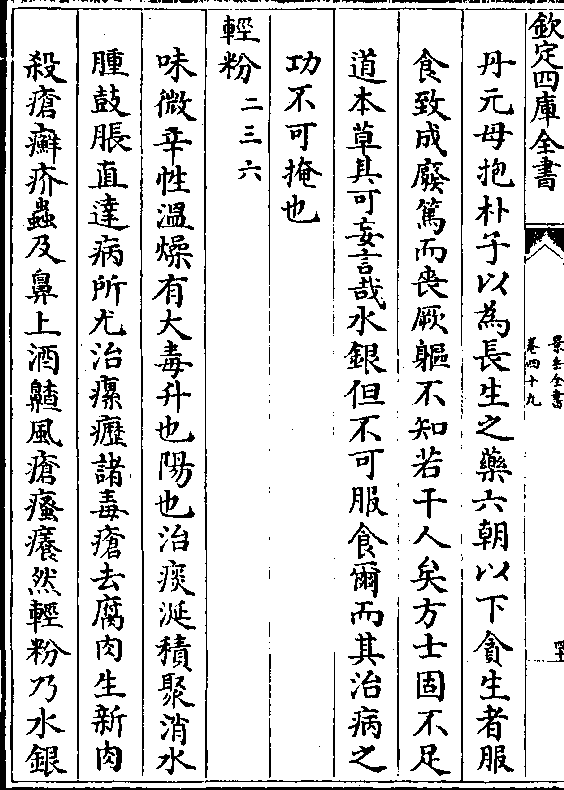 欽定四庫全書
景岳全書
卷四十九
丹元母抱朴子以為長生之藥六朝以下貪生者服
食致成廢篤而喪厥軀不知若干人矣方士固不足
道本草其可妄言哉水銀但不可服食爾而其治病之
功不可掩也
輕粉二三六
味微辛性溫燥有大毒升也陽也治痰涎積聚消水
腫鼓脹直達病所尤治瘰癧諸毒瘡去腐肉生新肉
殺瘡癬疥蟲及鼻上酒齄風瘡瘙癢然輕粉乃水銀